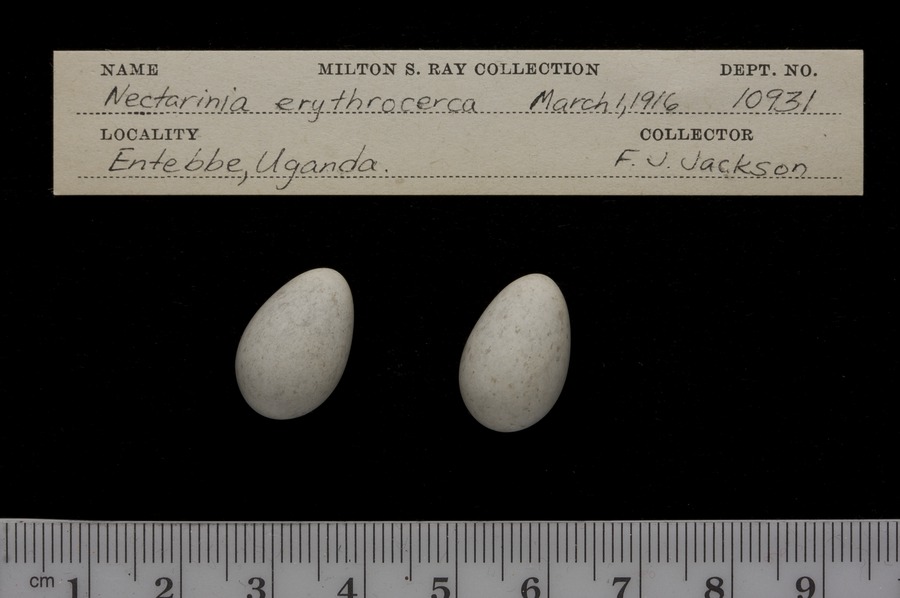 NAME MILTON S. RAY COLLECTION DEPT. NO.
Nectarinia erythrocerca March 1, 1916 10931
LOCALITY COLLECTOR
Entebbe, Uganda. F. J. Jackson
cm 1 2 3 4 5 6 7 8 9